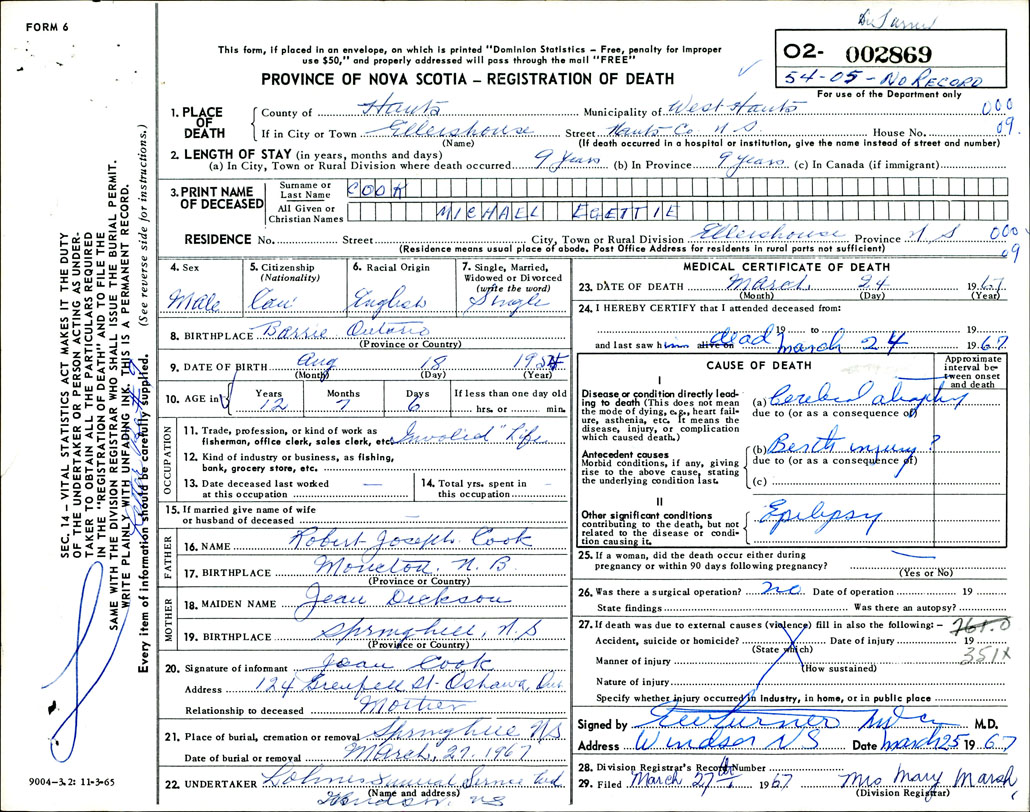 FORM 6
This form, if placed in an envelope, on which is printed "Dominion Statistics – Free, penalty for improper
use $50," and properly addressed will pass through the mail "FREE"
PROVINCE OF NOVA SCOTIA – REGISTRATION OF DEATH
O2- 002869
54-05-No Record
For use of the Department only
1. PLACE OF DEATH
County of Hants Municipality of West Hants 000
If in City or Town Ellershouse Street Hants Co N S House No. 09.
(Name) (If death occurred in a hospital or institution, give the name instead of street and number)
2. LENGTH OF STAY (in years, months and days)
(a) In City, Town or Rural Division where death occurred 9 Years (b) In Province 9 Years (c) In Canada (if immigrant)
3. PRINT NAME OF DECEASED
Surname or Last Name COOK
All Given or Christian Names MICHAEL EGETTIE
RESIDENCE No. Street City, Town or Rural Division Ellershouse Province N S 000
(Residence means usual place of abode. Post Office Address for residents in rural parts not sufficient) 09
4. Sex
Male
5. Citizenship
(Nationality)
Can
6. Racial Origin
English
7. Single, Married,
Widowed or Divorced
(write the word)
Single
8. BIRTHPLACE Barrie Ontario
(Province or Country)
9. DATE OF BIRTH Aug 18 1954
(Month) (Day) (Year)
10. AGE in
Years Months Days If less than one day old
12 7 6 hrs. or min.
OCCUPATION
11. Trade, profession, or kind of work as
fisherman, office clerk, sales clerk, etc. "Invalid" Life
12. Kind of industry or business, as fishing,
bank, grocery store, etc.
13. Date deceased last worked
at this occupation —
14. Total yrs. spent in
this occupation —
15. If married give name of wife
or husband of deceased —
FATHER
16. NAME Robert Joseph Cook
17. BIRTHPLACE Moncton. N. B
(Province or Country)
MOTHER
18. MAIDEN NAME Jean Dickson
19. BIRTHPLACE Springhill, N.S
(Province or Country)
20. Signature of informant Jean Cook
Address 124 Grenfell St- Oshawa, Ont
Relationship to deceased Mother
21. Place of burial, cremation or removal Springhill N.S
Date of burial or removal March, 27. 1967
22. UNDERTAKER Funeral Service
(Name and address)
N.S
MEDICAL CERTIFICATE OF DEATH
23. DATE OF DEATH March 24 1967
(Month) (Day) (Year)
24. I HEREBY CERTIFY that I attended deceased from:
19 to 19
and last saw him alive on dead March 24 1967
CAUSE OF DEATH
Approximate interval between onset and death
I
Disease or condition directly leading to death (This does not mean the mode of dying, e.g., heart failure, asthenia, etc. It means the disease, injury, or complication which caused death.)
(a) Cerebral atrophy
due to (or as a consequence of)
Antecedent causes
Morbid conditions, if any, giving rise to the above cause, stating the underlying condition last.
(b) Birth injury ?
due to (or as a consequence of)
(c)
II
Other significant conditions
contributing to the death, but not related to the disease or condition causing it.
Epilepsy
25. If a woman, did the death occur either during
pregnancy or within 90 days following pregnancy? —
(Yes or No)
26. Was there a surgical operation? no. Date of operation 19
State findings Was there an autopsy?
27. If death was due to external causes (violence) fill in also the following: – 761.0
Accident, suicide or homicide? Date of injury 19
(State which) 351X
Manner of injury
(How sustained)
Nature of injury
Specify whether injury occurred in industry, in home, or in public place
Signed by M.D.
Address Windsor NS Date March 25 1967
28. Division Registrar's Record Number
29. Filed March 27th 1967 Mrs Mary Marsh
(Division Registrar)
SEC. 14 – VITAL STATISTICS ACT MAKES IT THE DUTY
OF THE UNDERTAKER OR PERSON ACTING AS UNDER-
TAKER TO OBTAIN ALL THE PARTICULARS REQUIRED
IN THE "REGISTRATION OF DEATH" AND TO FILE THE
SAME WITH THE DIVISION REGISTRAR WHO SHALL ISSUE THE BURIAL PERMIT.
WRITE PLAINLY WITH UNFADING INK. THIS IS A PERMANENT RECORD.
Every item of information should be carefully supplied. (See reverse side for instructions.)
9004-3.2: 11-3-65